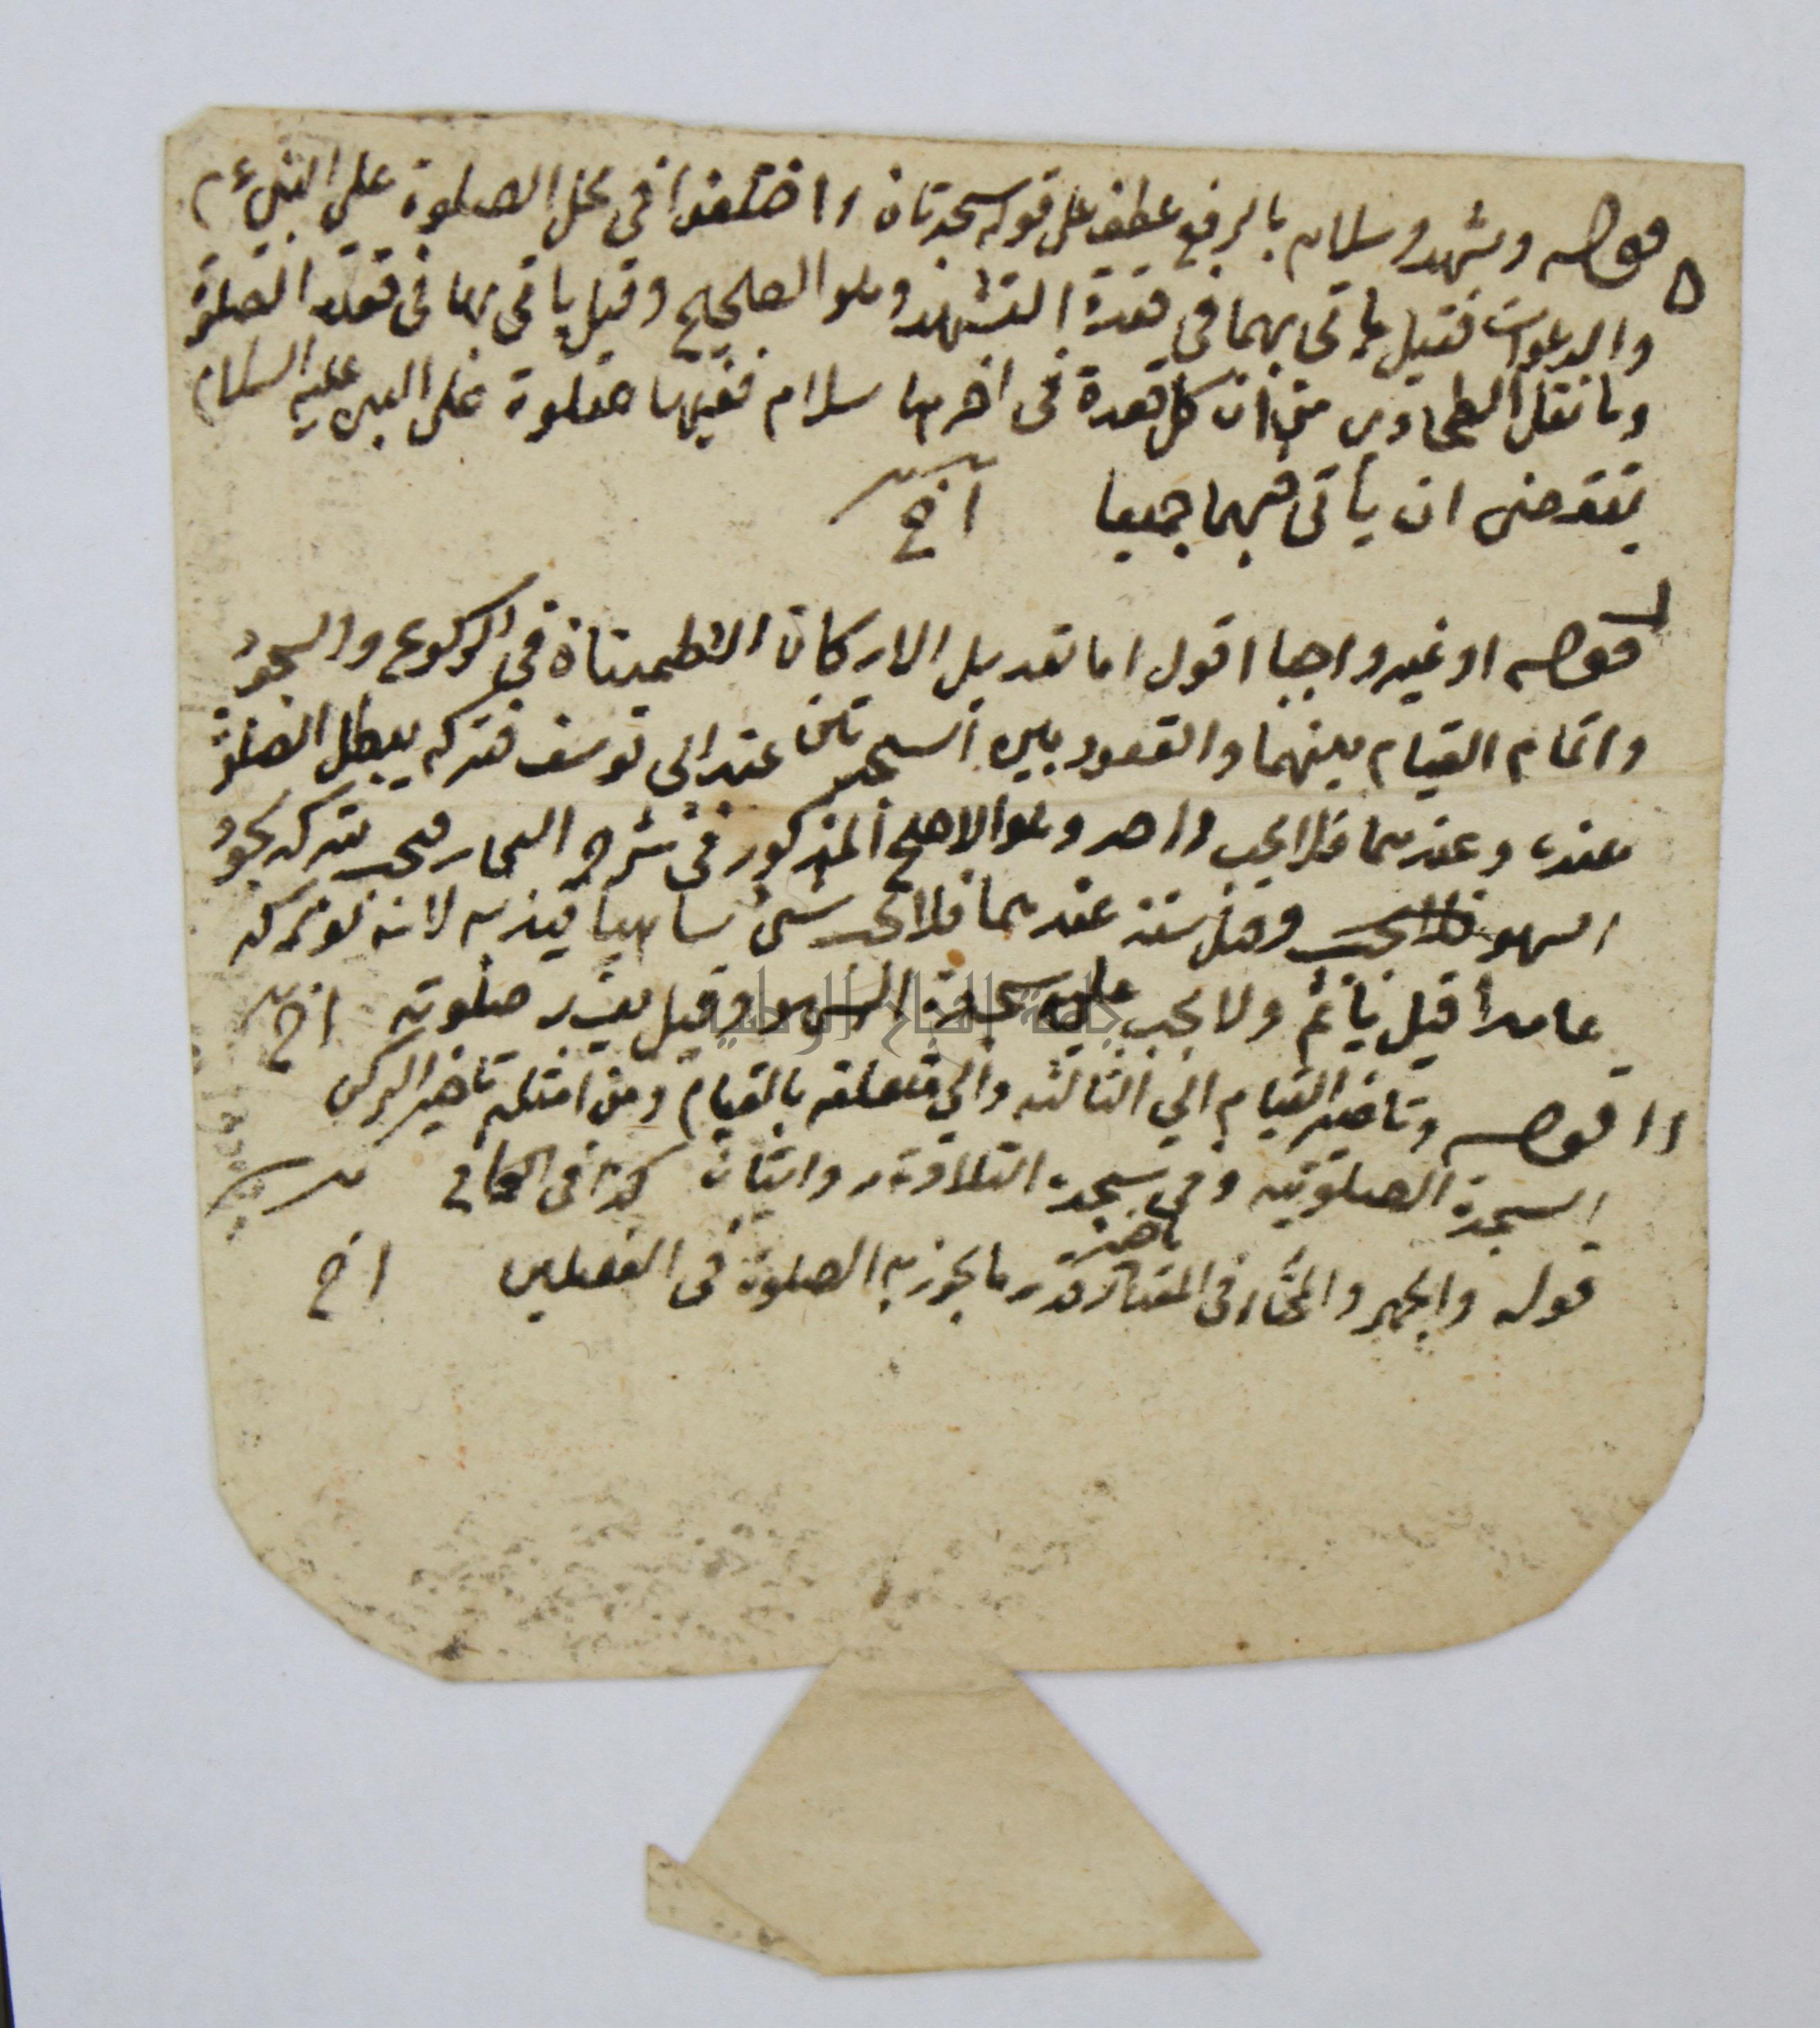 ٥ قوله وتشهد وسلام بالرفع عطف على قوله سجدتان واختلفوا في محل الصلوة على النبي ءم
والدعوات فقيل يأتى بهما في قعدة التشهد وهو الصحيح وقيل ياتى بهما فى قعدة الصلوة
وما نقل الطحاوى من ان كل قعدة فى اخرها سلام ففيها صلوة على النبى عليه السلام
يقتضى ان ياتى فيهما جميعا اخ
قوله او غير واجبا اقول اما تعديل الاركان التطميناة في الركوع والسجود
واتمام القيام بينهما والقعود بين السجدتين عند ابى يوسف فتركه يبطل الصلوة
عنده وعندهما فلا يجب واحد وهو الاصح المذكور فى شرح البحار فحـ بتركه يجود
السهو فلا يجب وقيل سنة عندهما فلا يجب شئ ساهيا قيد به لانه لو تركه
عامدا قيل يأثم ولا يجب عليه سجدة السهو وقيل يعيد صلوته اخ
١١ قوله وتاخير القيام الي الثالثه والي متعلقه بالقيام ومن امثلته تاخير الركن
السجدة الصلوتيه وفي تاخير سجدة التلاوة روايتان كذا فى الكافي
قوله والجهر والمختار فى المقدار قدر ما يجوز به الصلوة فى الفصلين اخ
جامعة النجاح الوطنية